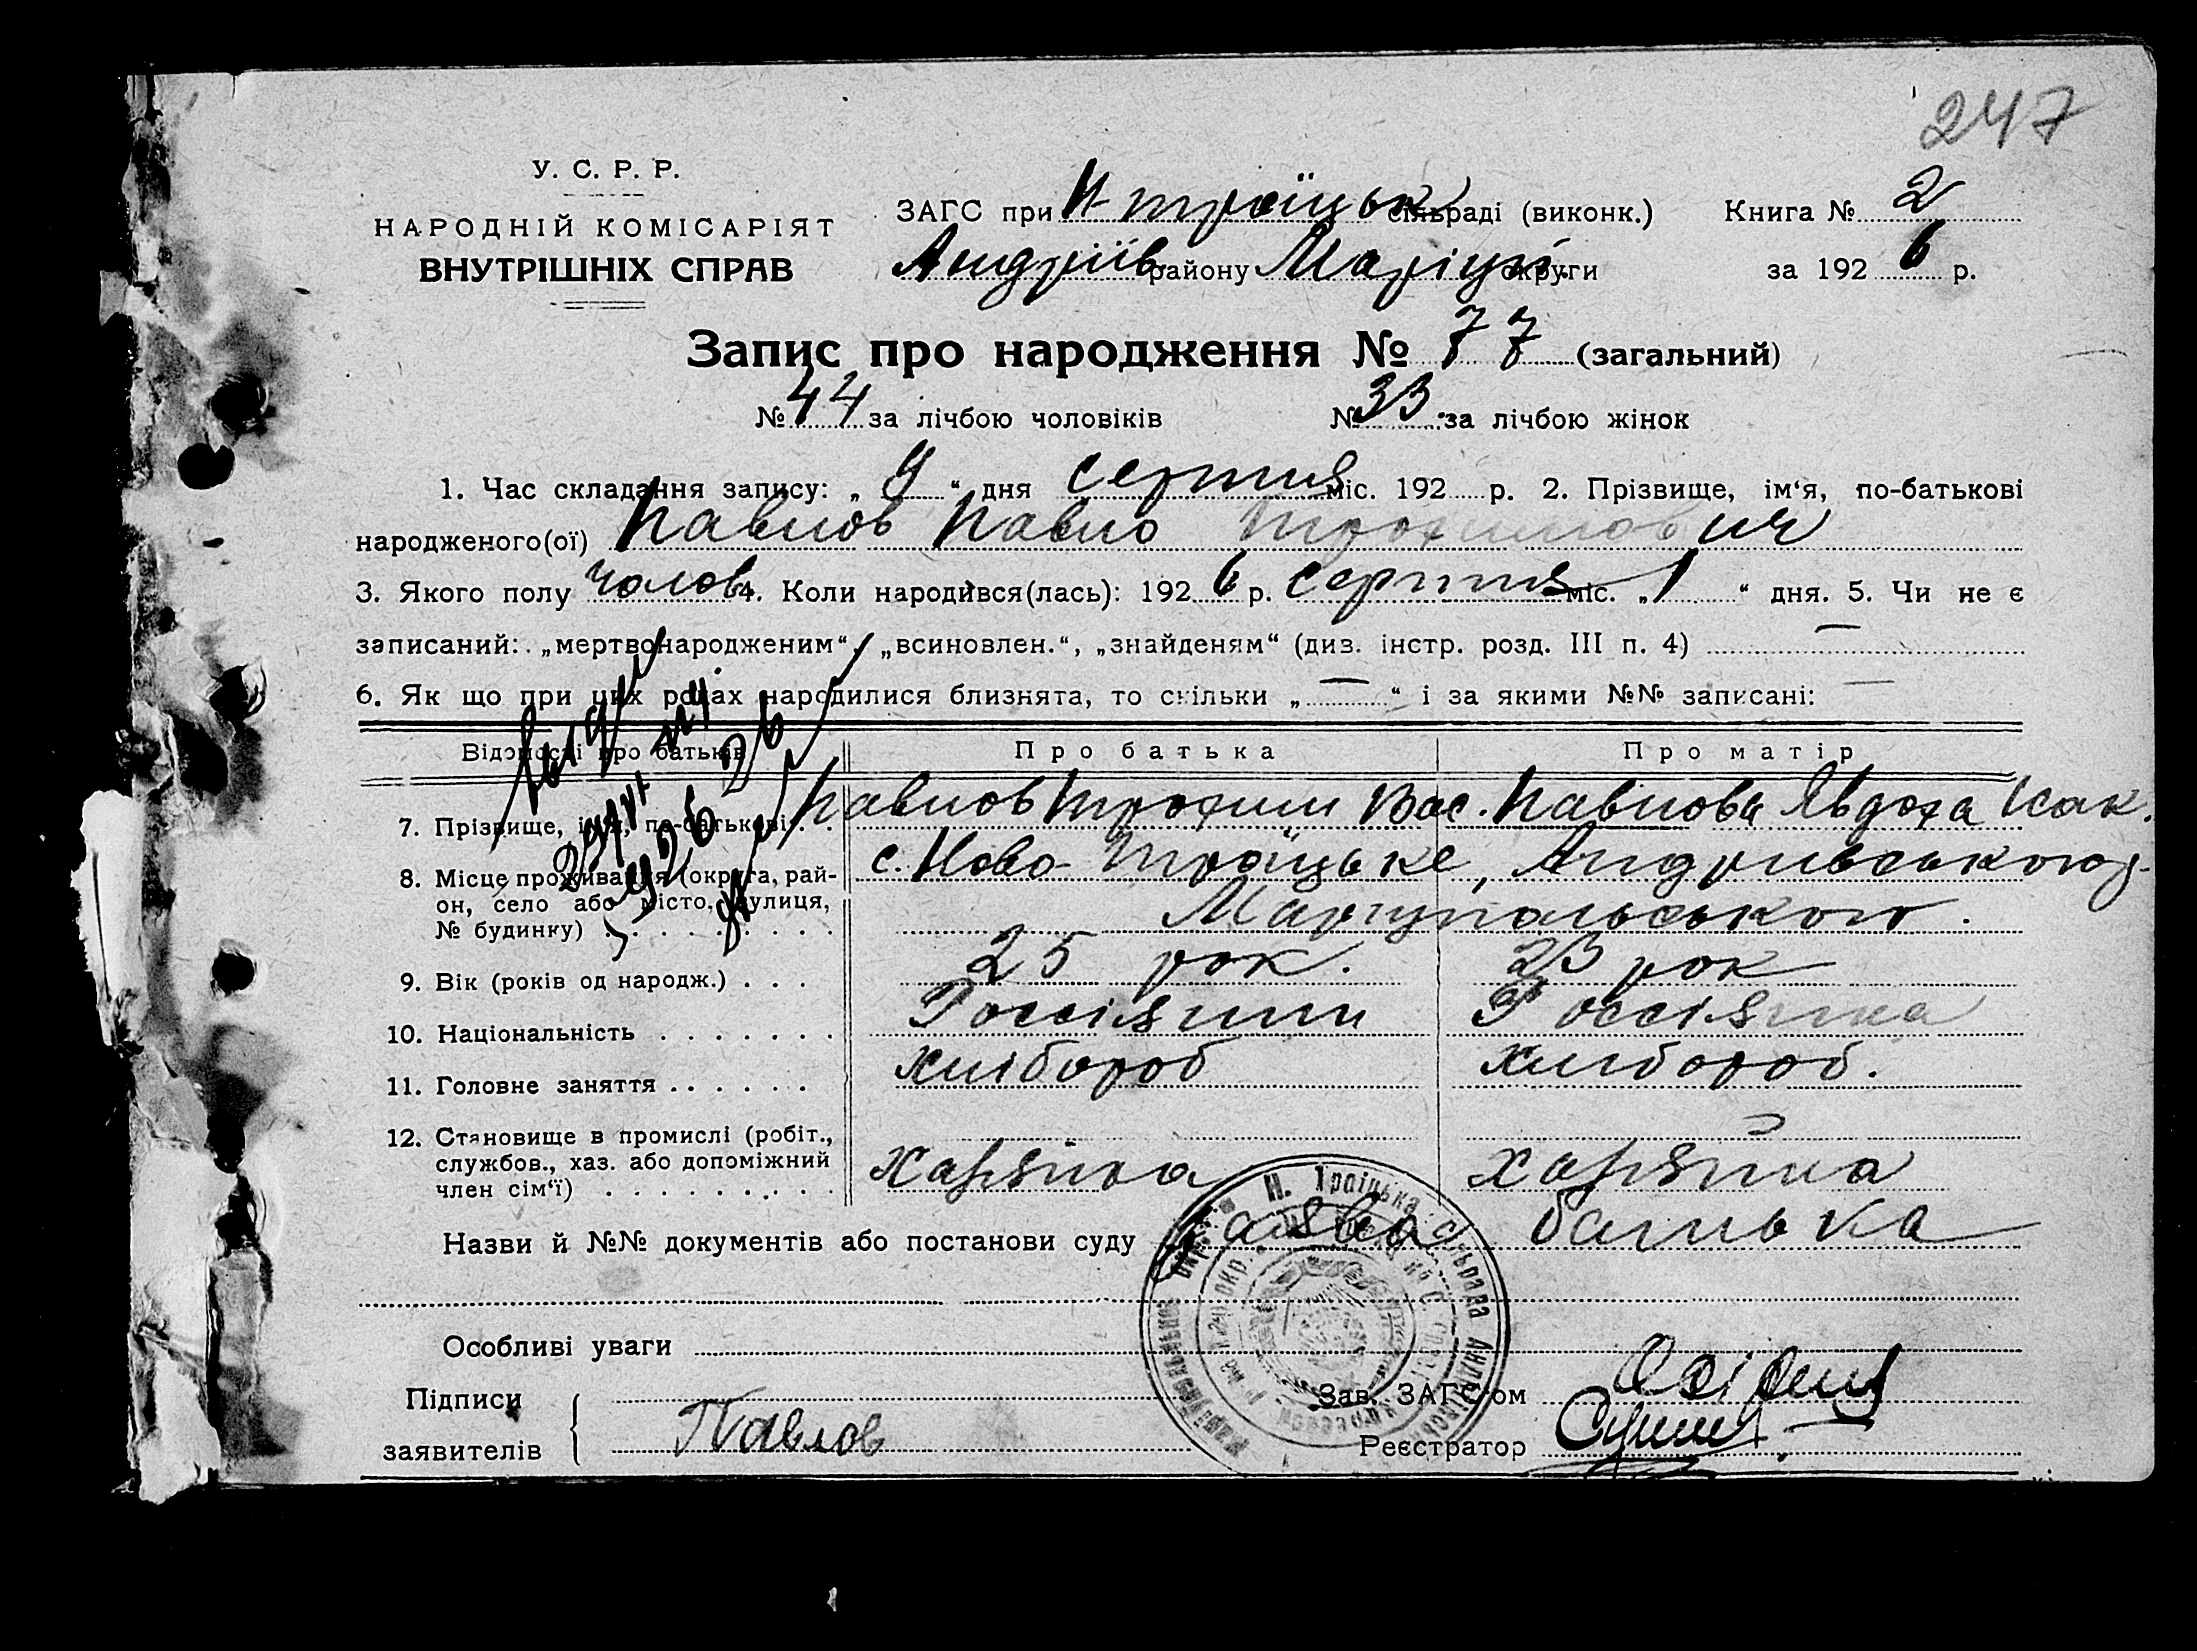 247
У. С. Р. Р.
НАРОДНІЙ КОМІСАРІЯТ
ВНУТРІШНІХ СПРАВ
ЗАГС при Н-Троїцьк сільраді (виконк.) Книга № 2
Андріїв району Маріуп. округи за 192 6 р.
Запис про народження № 77 (загальний)
№ 44 за лічбою чоловіків № 33 за лічбою жінок
1. Час складання запису: „ 9 “ дня серпня міс. 192 р. 2. Прізвище, ім‘я, по-батькові
народженого(ої) Павлов Павло Трохимович
3. Якого полу чолов. 4. Коли народився(лась): 192 6 р. серпня міс. „ 1 “ дня. 5. Чи не є
записаний: „мертвонародженим“, „всиновлен.“, „знайденям“ (див. інстр. розд. III п. 4) —
6. Як що при цих родах народилися близнята, то скільки „ — “ і за якими №№ записані: —
Відомості про батьків Про батька Про матір
7. Прізвище, ім‘я, по-батькові . . Павлов Трохим Вас. Павлова Явдоха Ісак.
8. Місце проживання (округа, рай-
он, село або місто, вулиця,
№ будинку) . . . . . . . .
с. Ново Троїцьке, Андріївського р.
Маріупольського.
9. Вік (років од народж.) . . . 25 рок. 23 рок
10. Національність . . . . . . . Россіянин Россіянка
11. Головне заняття . . . . . . хлібороб хлібороб.
12. Становище в промислі (робіт.,
службов., хаз. або допоміжний
член сім‘ї) . . . . . . . . .
Назви й №№ документів або постанови суду Заява батька
Особливі уваги
Підписи
заявителів
Павлов
Зав. ЗАГС‘ом
Реєстратор